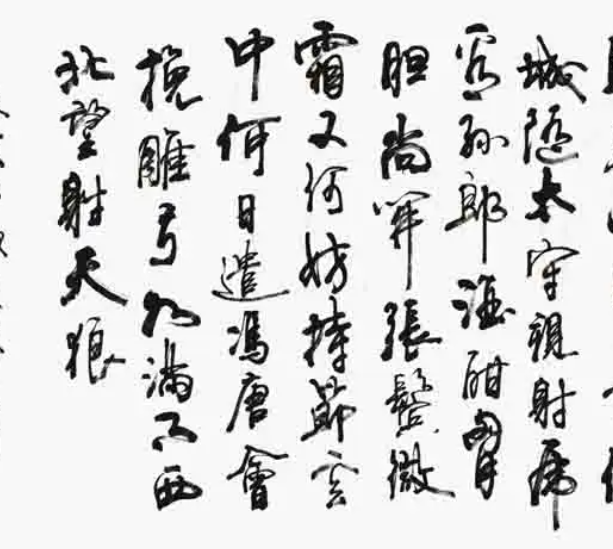 城随太守親射虎
看孫郎酒酣胸
胆尚開張鬢微
霜又何妨持節雲
中何日遣馮唐會
挽雕弓如滿月西
北望射天狼